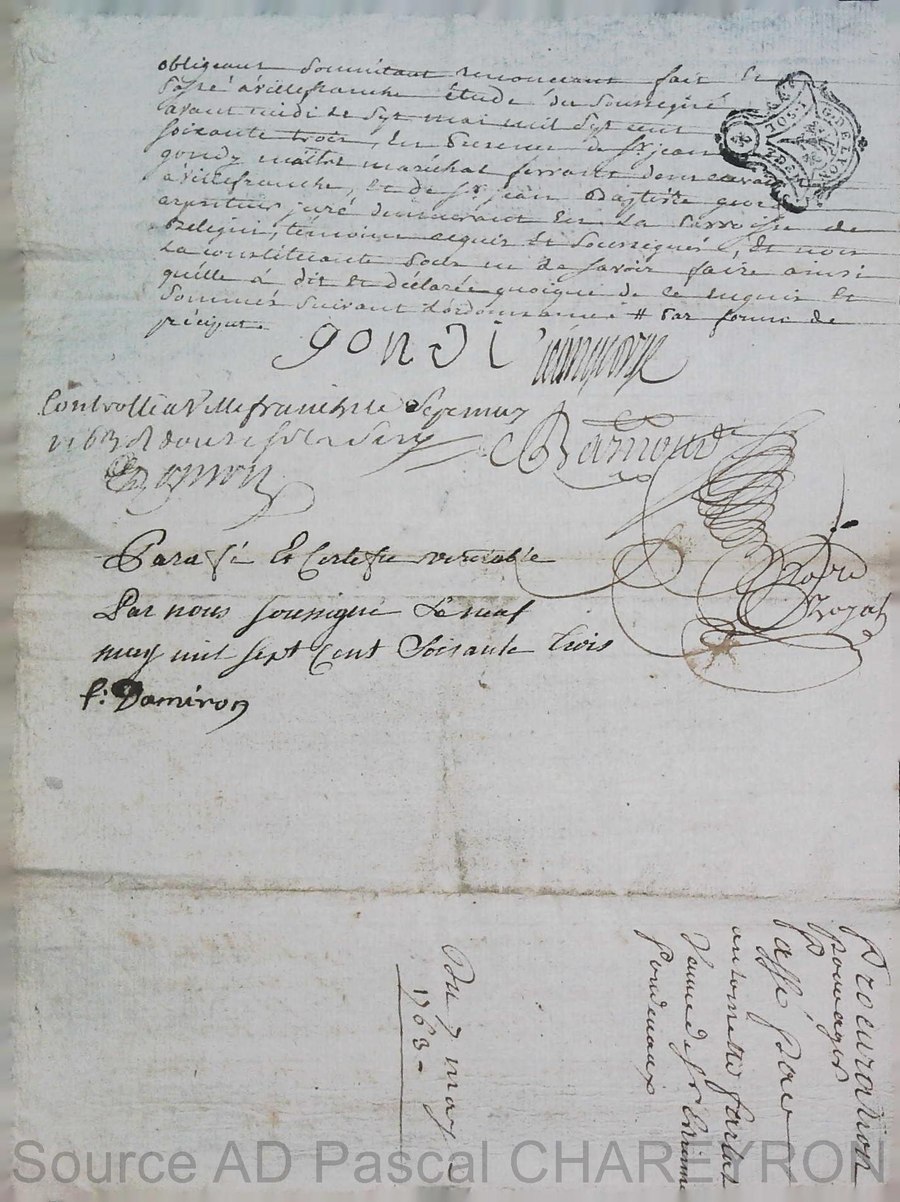 obligeant soumettant renonceant fait et
passé à villefranche étude du soussigné
avant midi le sept mai mil sept cent
soixante trois, en presence de sr. jean
gondy maître maréchal ferrant demeurant
à villefranche, et de sr. jean Baptiste
arpenteur juré demeurant en la parroisse de
Beligni, témoins requis et soussignés, et non
la constituante pour ne savoir faire ainsi
quelle à dit et déclarée quoique de ce enquise et
sommée suivant l'ordonnance # par forme de
préciput.
gondi
Controllé a Villefranche le sept may
1763 R douze sols
Bernoud
Notre Royal
Parafé Et Certifié veritable
Par nous soussigné Le neuf
may mil sept Cent Soixante trois
f: Damiron
G. DE LYON
Procuration
passé par
antoinette
Veuve de sr
Du 7 may
1763
Source AD Pascal CHAREYRON